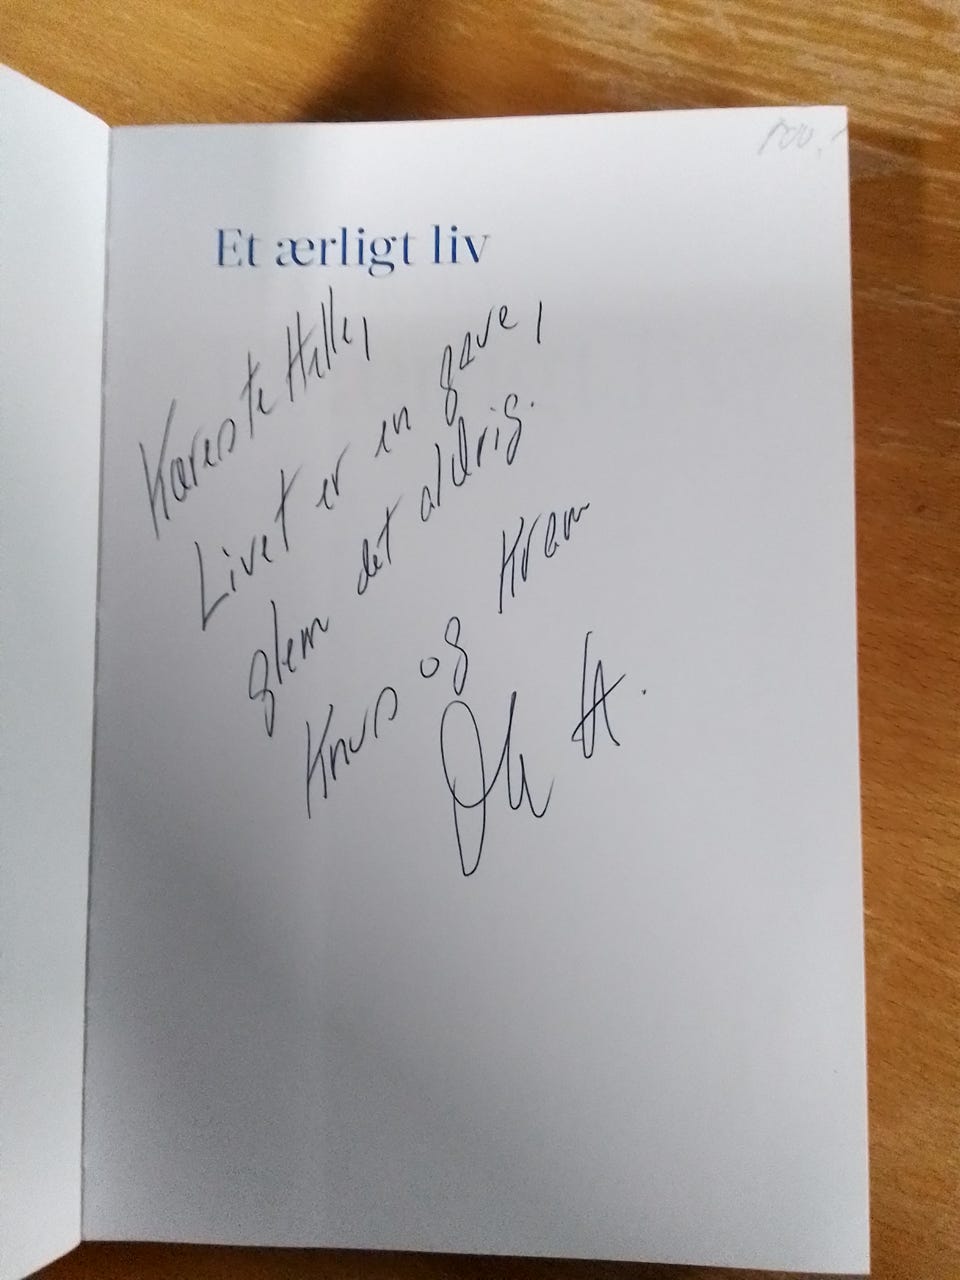 100,-
Et ærligt liv
Kæreste Helle,
Livet er en gave,
glem det aldrig.
Knus og Kram